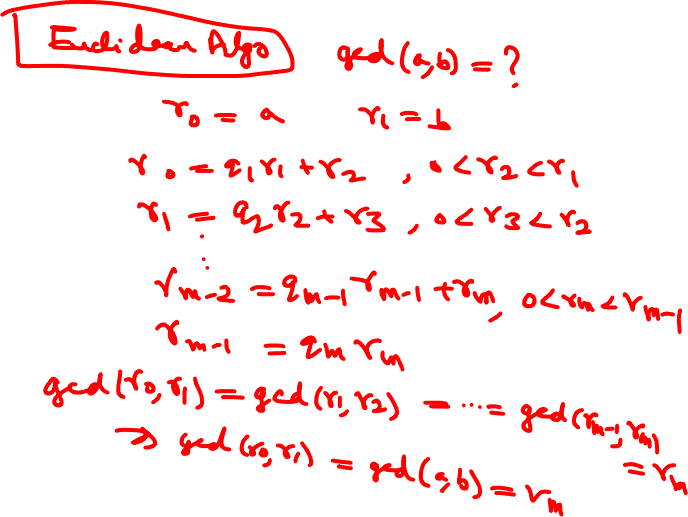 Euclidean Algo gcd(a,b) = ?
r₀ = a r₁ = b
r₀ = q₁r₁ + r₂ , 0 < r₂ < r₁
r₁ = q₂r₂ + r₃ , 0 < r₃ < r₂
⋮
rₘ₋₂ = qₘ₋₁ rₘ₋₁ + rₘ, 0 < rₘ < rₘ₋₁
rₘ₋₁ = qₘ rₘ
gcd(r₀,r₁) = gcd(r₁,r₂) = ... = gcd(rₘ₋₁,rₘ) = rₘ
⇒ gcd(r₀,r₁) = gcd(a,b) = rₘ